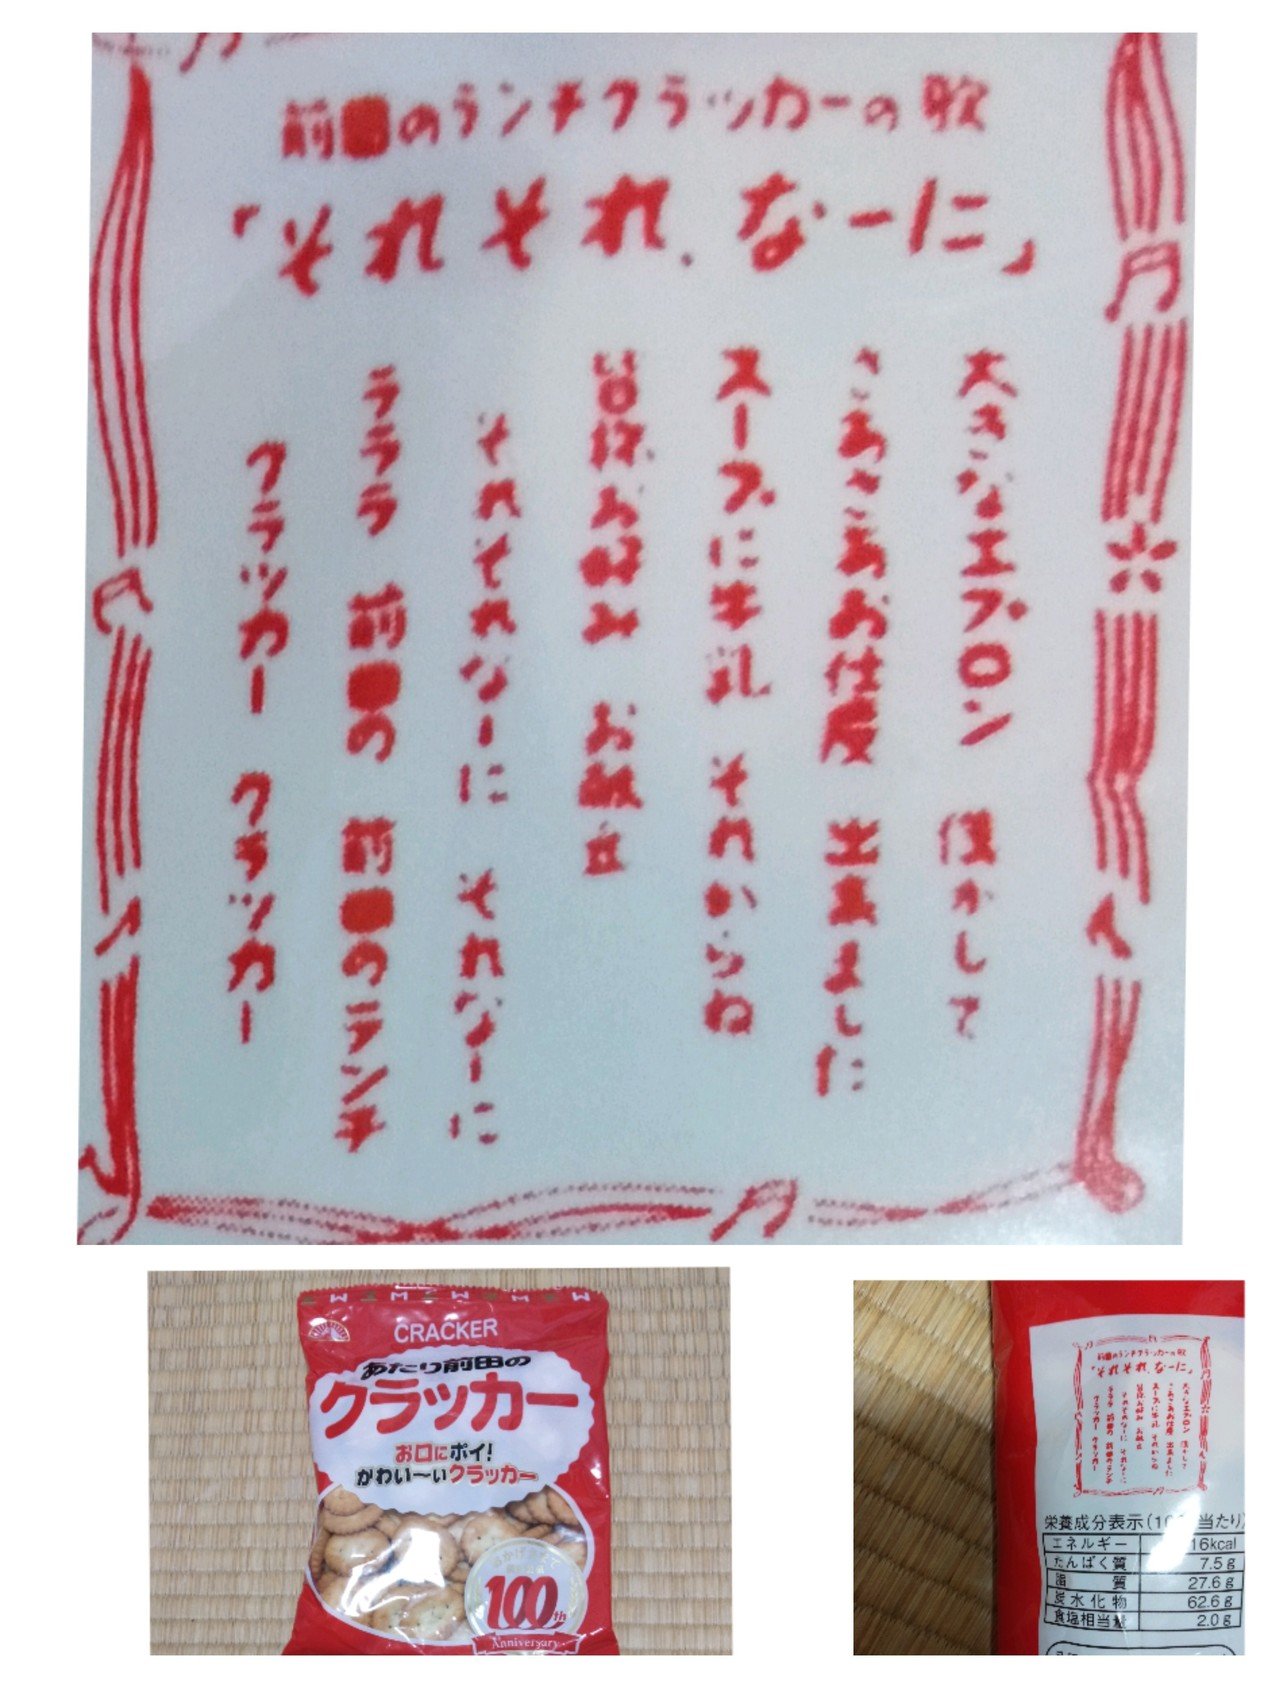 前田のランチクラッカーの歌
「それそれ、なーに」
大きなエプロン 僕かして
さあさあお仕度 出来ました
スープに牛乳 それからね
皆様お好み お献立
それそれなーに それなーに
ラララ 前田の 前田のランチ
クラッカー クラッカー
CRACKER
あたり前田の
クラッカー
お口にポイ!
かわい〜いクラッカー
100th
Anniversary
前田のランチクラッカーの歌
「それそれ、なーに」
大きなエプロン 僕かして
さあさあお仕度 出来ました
スープに牛乳 それからね
皆様お好み お献立
それそれなーに それなーに
ラララ 前田の 前田のランチ
クラッカー クラッカー
栄養成分表示(10 当たり)
エネルギー 16kcal
たんぱく質 7.5g
脂質 27.6g
炭水化物 62.6g
食塩相当量 2.0g